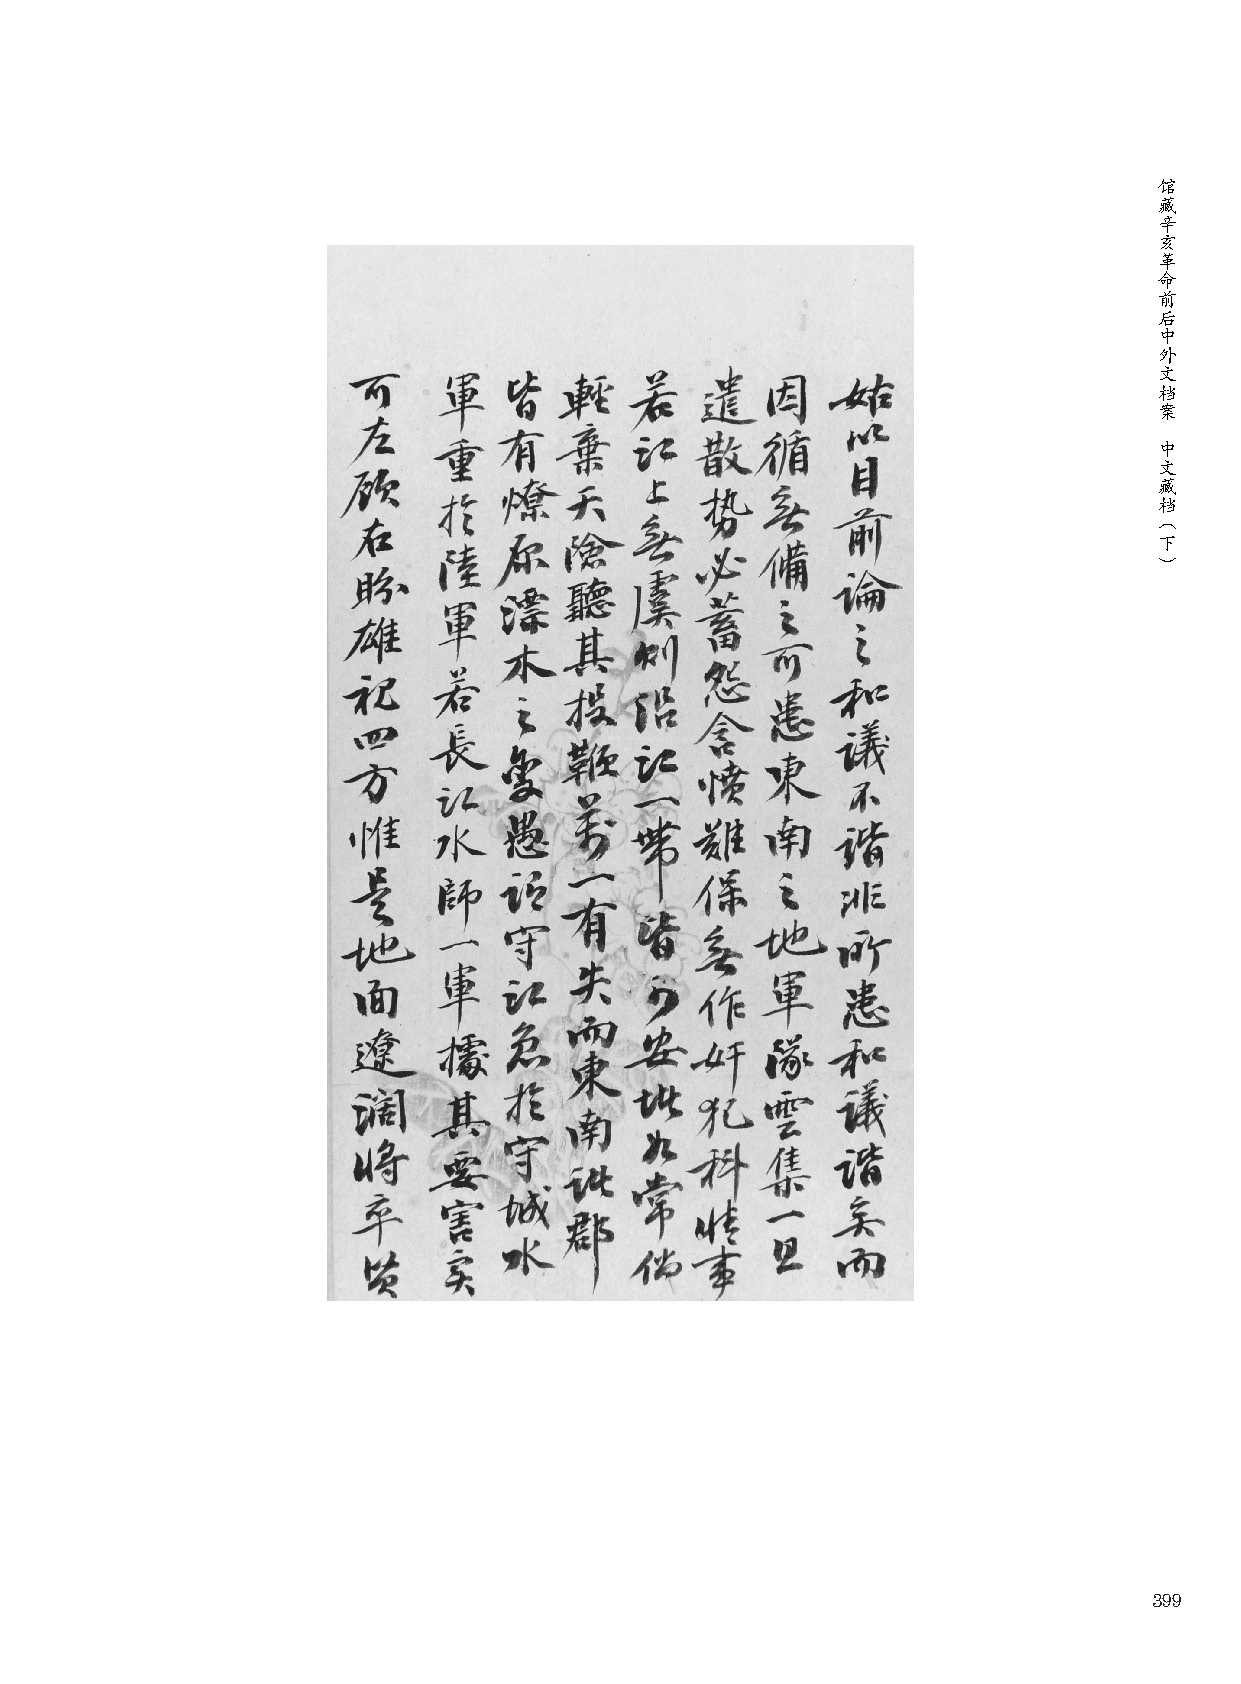 馆藏辛亥革命前后中外文档案 中文藏档（下）
姑以目前論之和議不諧非所患和議諧矣而
因循無備之可患東南之地軍隊雲集一旦
遣散势必蓄怨含憤難保無作奸犯科情事
若江上無虞則沿江一带皆可安堵如常倘
輕棄天險聽其投鞭萬一有失而東南諸郡
皆有燎原漂木之變愚謂守江急於守城水
軍重於陸軍若長江水師一軍據其要害实
可左顧右盼雄視四方惟是地面遼濶將卒
399